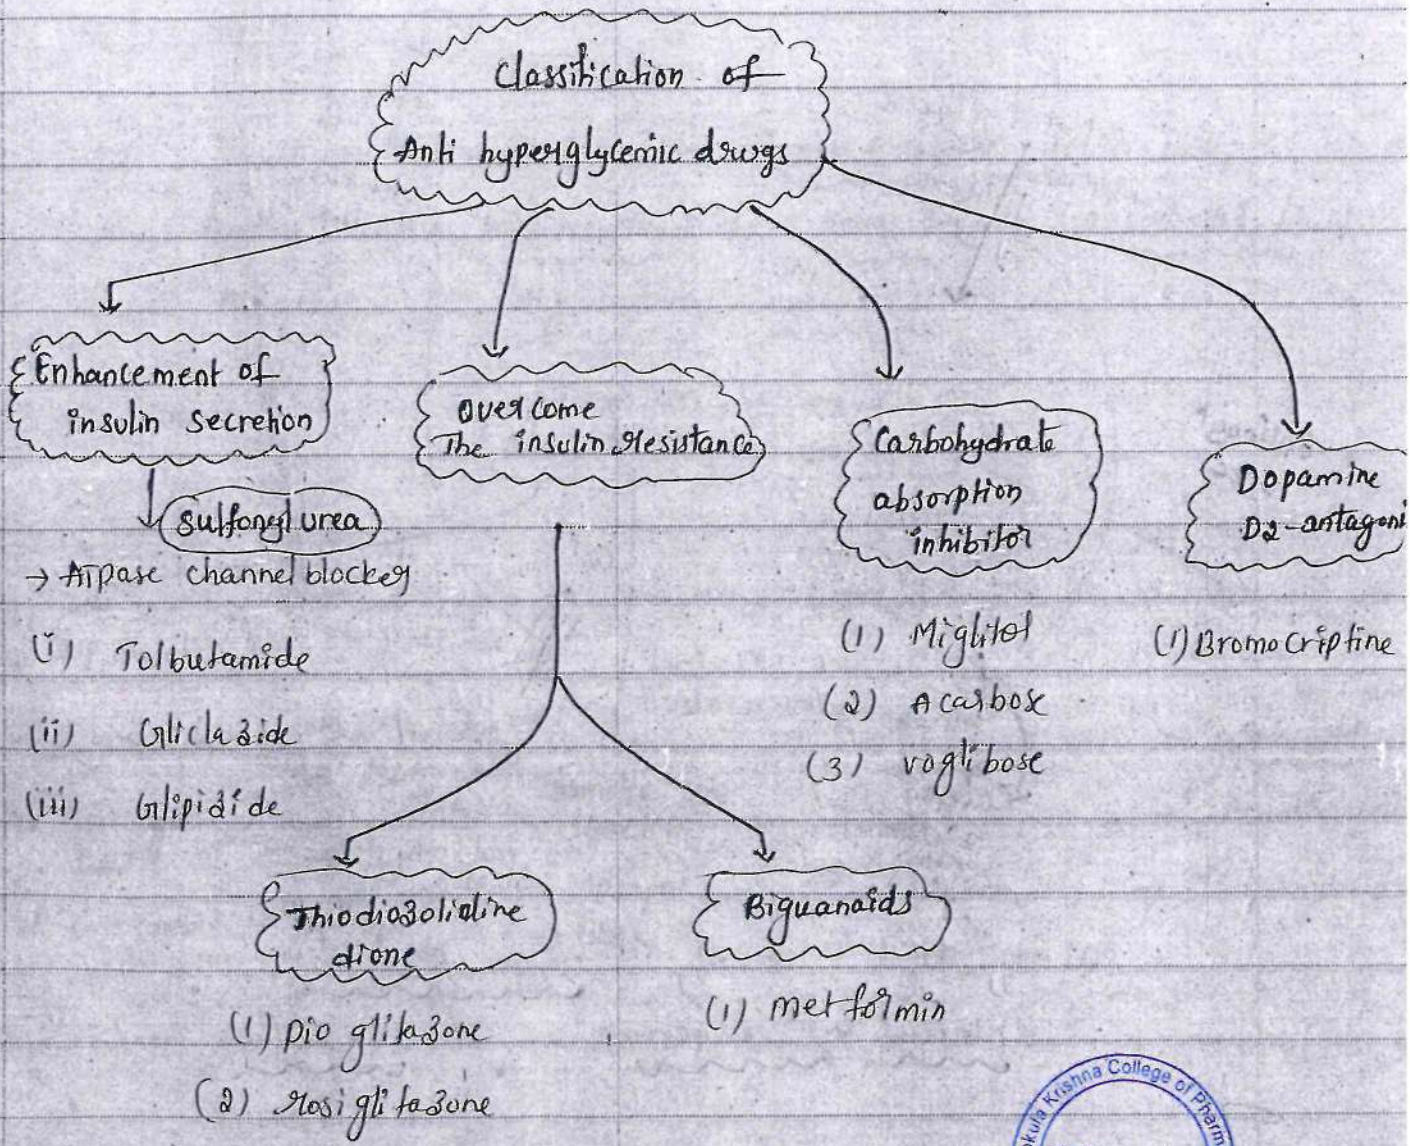 Classification of
Anti hyperglycemic drugs
Enhancement of
insulin secretion
Sulfonyl urea
→ ATpase channel blocker
(i) Tolbutamide
(ii) Gliclazide
(iii) Glipizide
Overcome
The insulin resistance
Thiodiozolidine
dione
(1) pio glitazone
(2) rosi glitazone
Biguanaids
(1) metformin
Carbohydrate
absorption
inhibitor
(1) Miglitol
(2) Acarbose
(3) voglibose
Dopamine
D2-antagoni
(1) Bromocriptine
kula Krishna College of Pharm